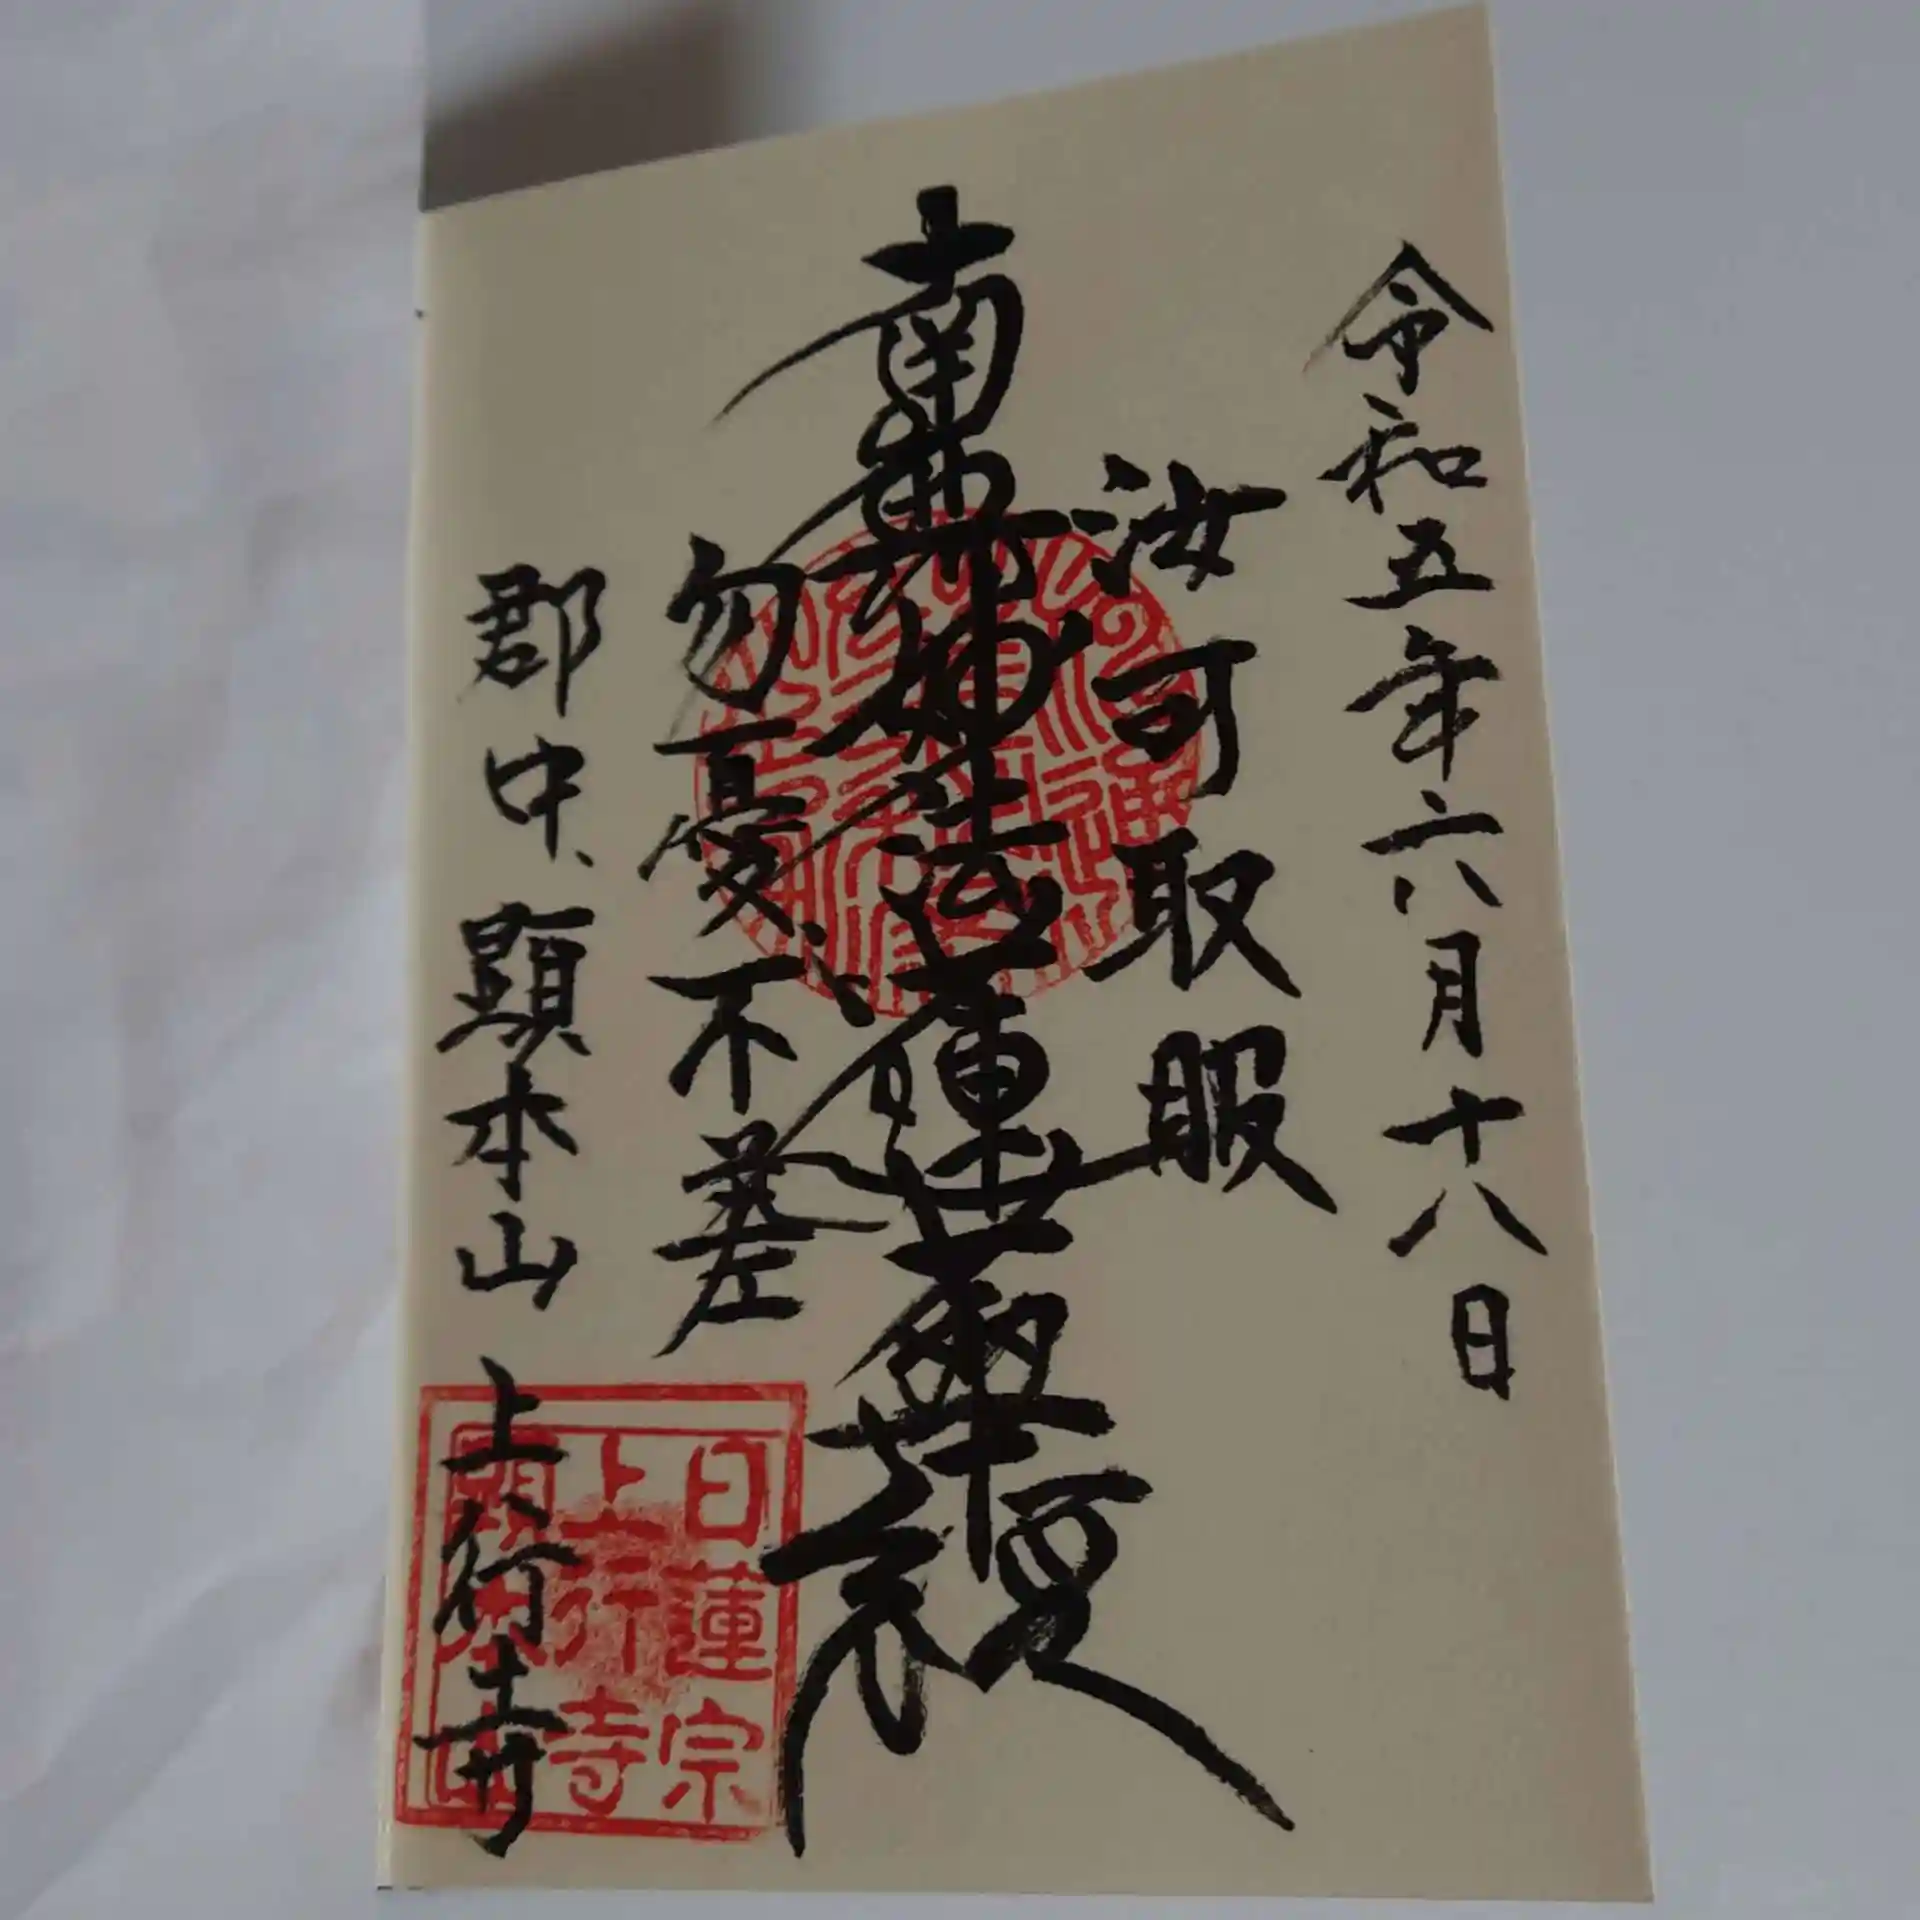 令和五年六月十八日
汝可取服
南無妙法蓮華経
勿憂不差
郡中、顕本山 上行寺
日蓮宗
上行寺
顕本山